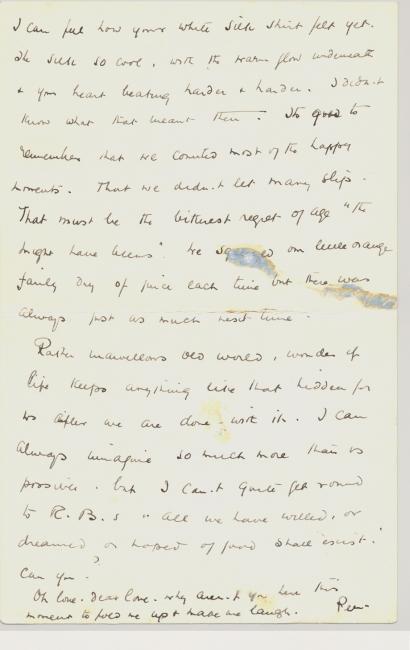 I can feel how your white silk shirt felt yet.
The silk so cool, with the warm glow underneath
& your heart beating harder & harder. I didn't
know what that meant then. Its good to
remember that we counted most of the happy
moments. That we didn't let many slip.
That must be the bitterest regret of age "the
might have beens". We sq ed our little orange
fairly dry of juice each time but there was
always just as much next time.
Rather marvellous old world, wonder if
life keeps anything like that hidden for
us after we are done with it. I can
always imagine so much more than is
possible. but I can't quite get round
to R. B. s "all we have willed, or
dreamed or hoped of good shall exist."
Can you?
Oh love. dear love. why aren't you here this
moment to hold me up & make me laugh.